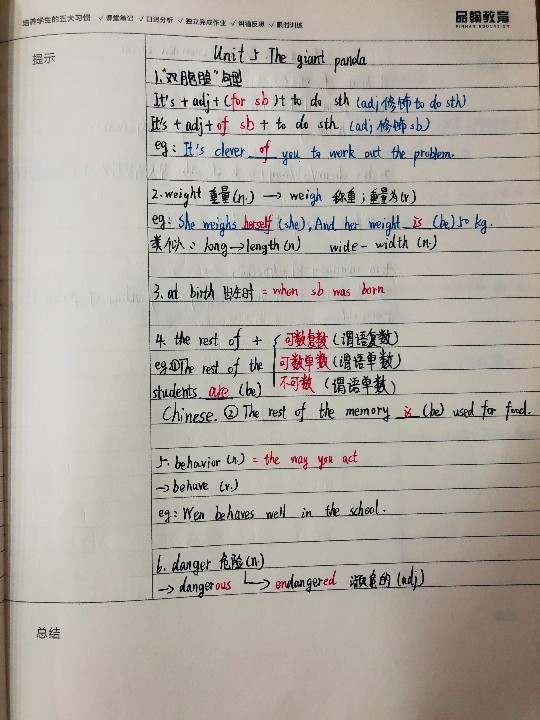 培养学生的五大习惯 ✓课堂笔记 ✓口述分析 ✓独立完成作业 ✓纠错反思 ✓限时训练
品翰教育
PINHAN EDUCATION
提示
Unit 5 The giant panda
1."双胞胎"句型
It's + adj + (for sb) + to do sth (adj 修饰 to do sth)
It's + adj + of sb + to do sth (adj 修饰 sb)
eg: It's clever of you to work out the problem.
2. weight 重量(n.) → weigh 称重；重量为(v)
eg: She weighs herself (she), And her weight is (be) 50 kg.
类似: long→length(n) wide-width (n.)
3. at birth 出生时 = when sb was born
4. the rest of + 可数复数 (谓语复数)
eg:①The rest of the 可数单数 (谓语单数)
students are (be) 不可数 (谓语单数)
Chinese. ② The rest of the memory is (be) used for food.
5. behavior (n.) = the way you act
→ behave (v.)
eg: Wen behaves well in the school.
6. danger 危险(n.)
→ dangerous → endangered 濒危的 (adj)
总结